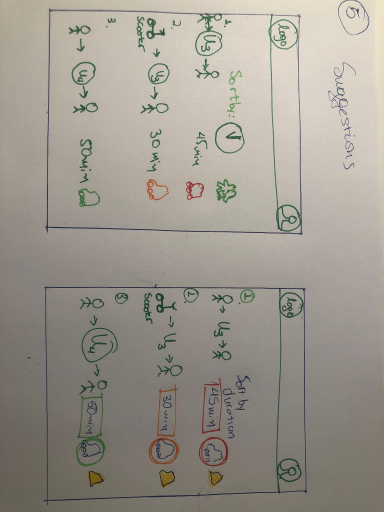 5
Suggestions
logo
Sort by:
V
1.
U3
45 min
2.
Scooter
U3
30 min
3.
U4
50 min
logo
Sort by
duration
1
U3
45 min
2
Scooter
U3
30 min
3
U4
50 min